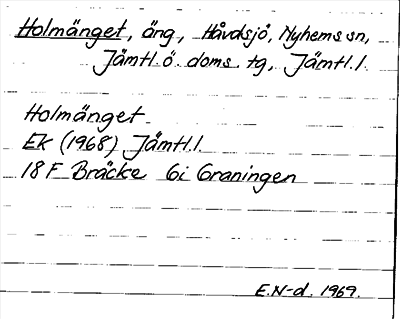 Holmänget, äng, Håvdsjö, Nyhems sn,
Jämtl. ö. doms. tg, Jämtl. l.
Holmänget
EK (1968) Jämtl. l.
18 F Bräcke 6i Graningen
E.N-d. 1969.